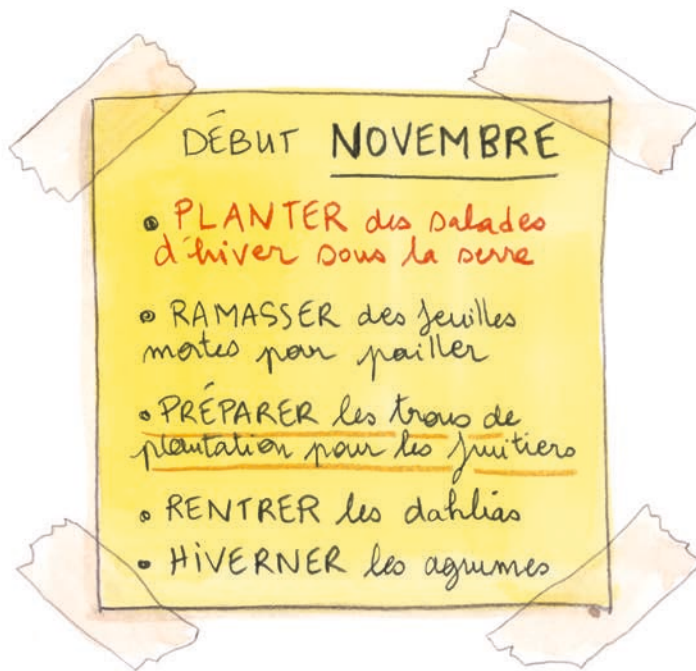 DÉBUT NOVEMBRE
• PLANTER des salades
d'hiver sous la serre
• RAMASSER des feuilles
mortes pour pailler
• PRÉPARER les trous de
plantation pour les fruitiers
• RENTRER les dahlias
• HIVERNER les agrumes